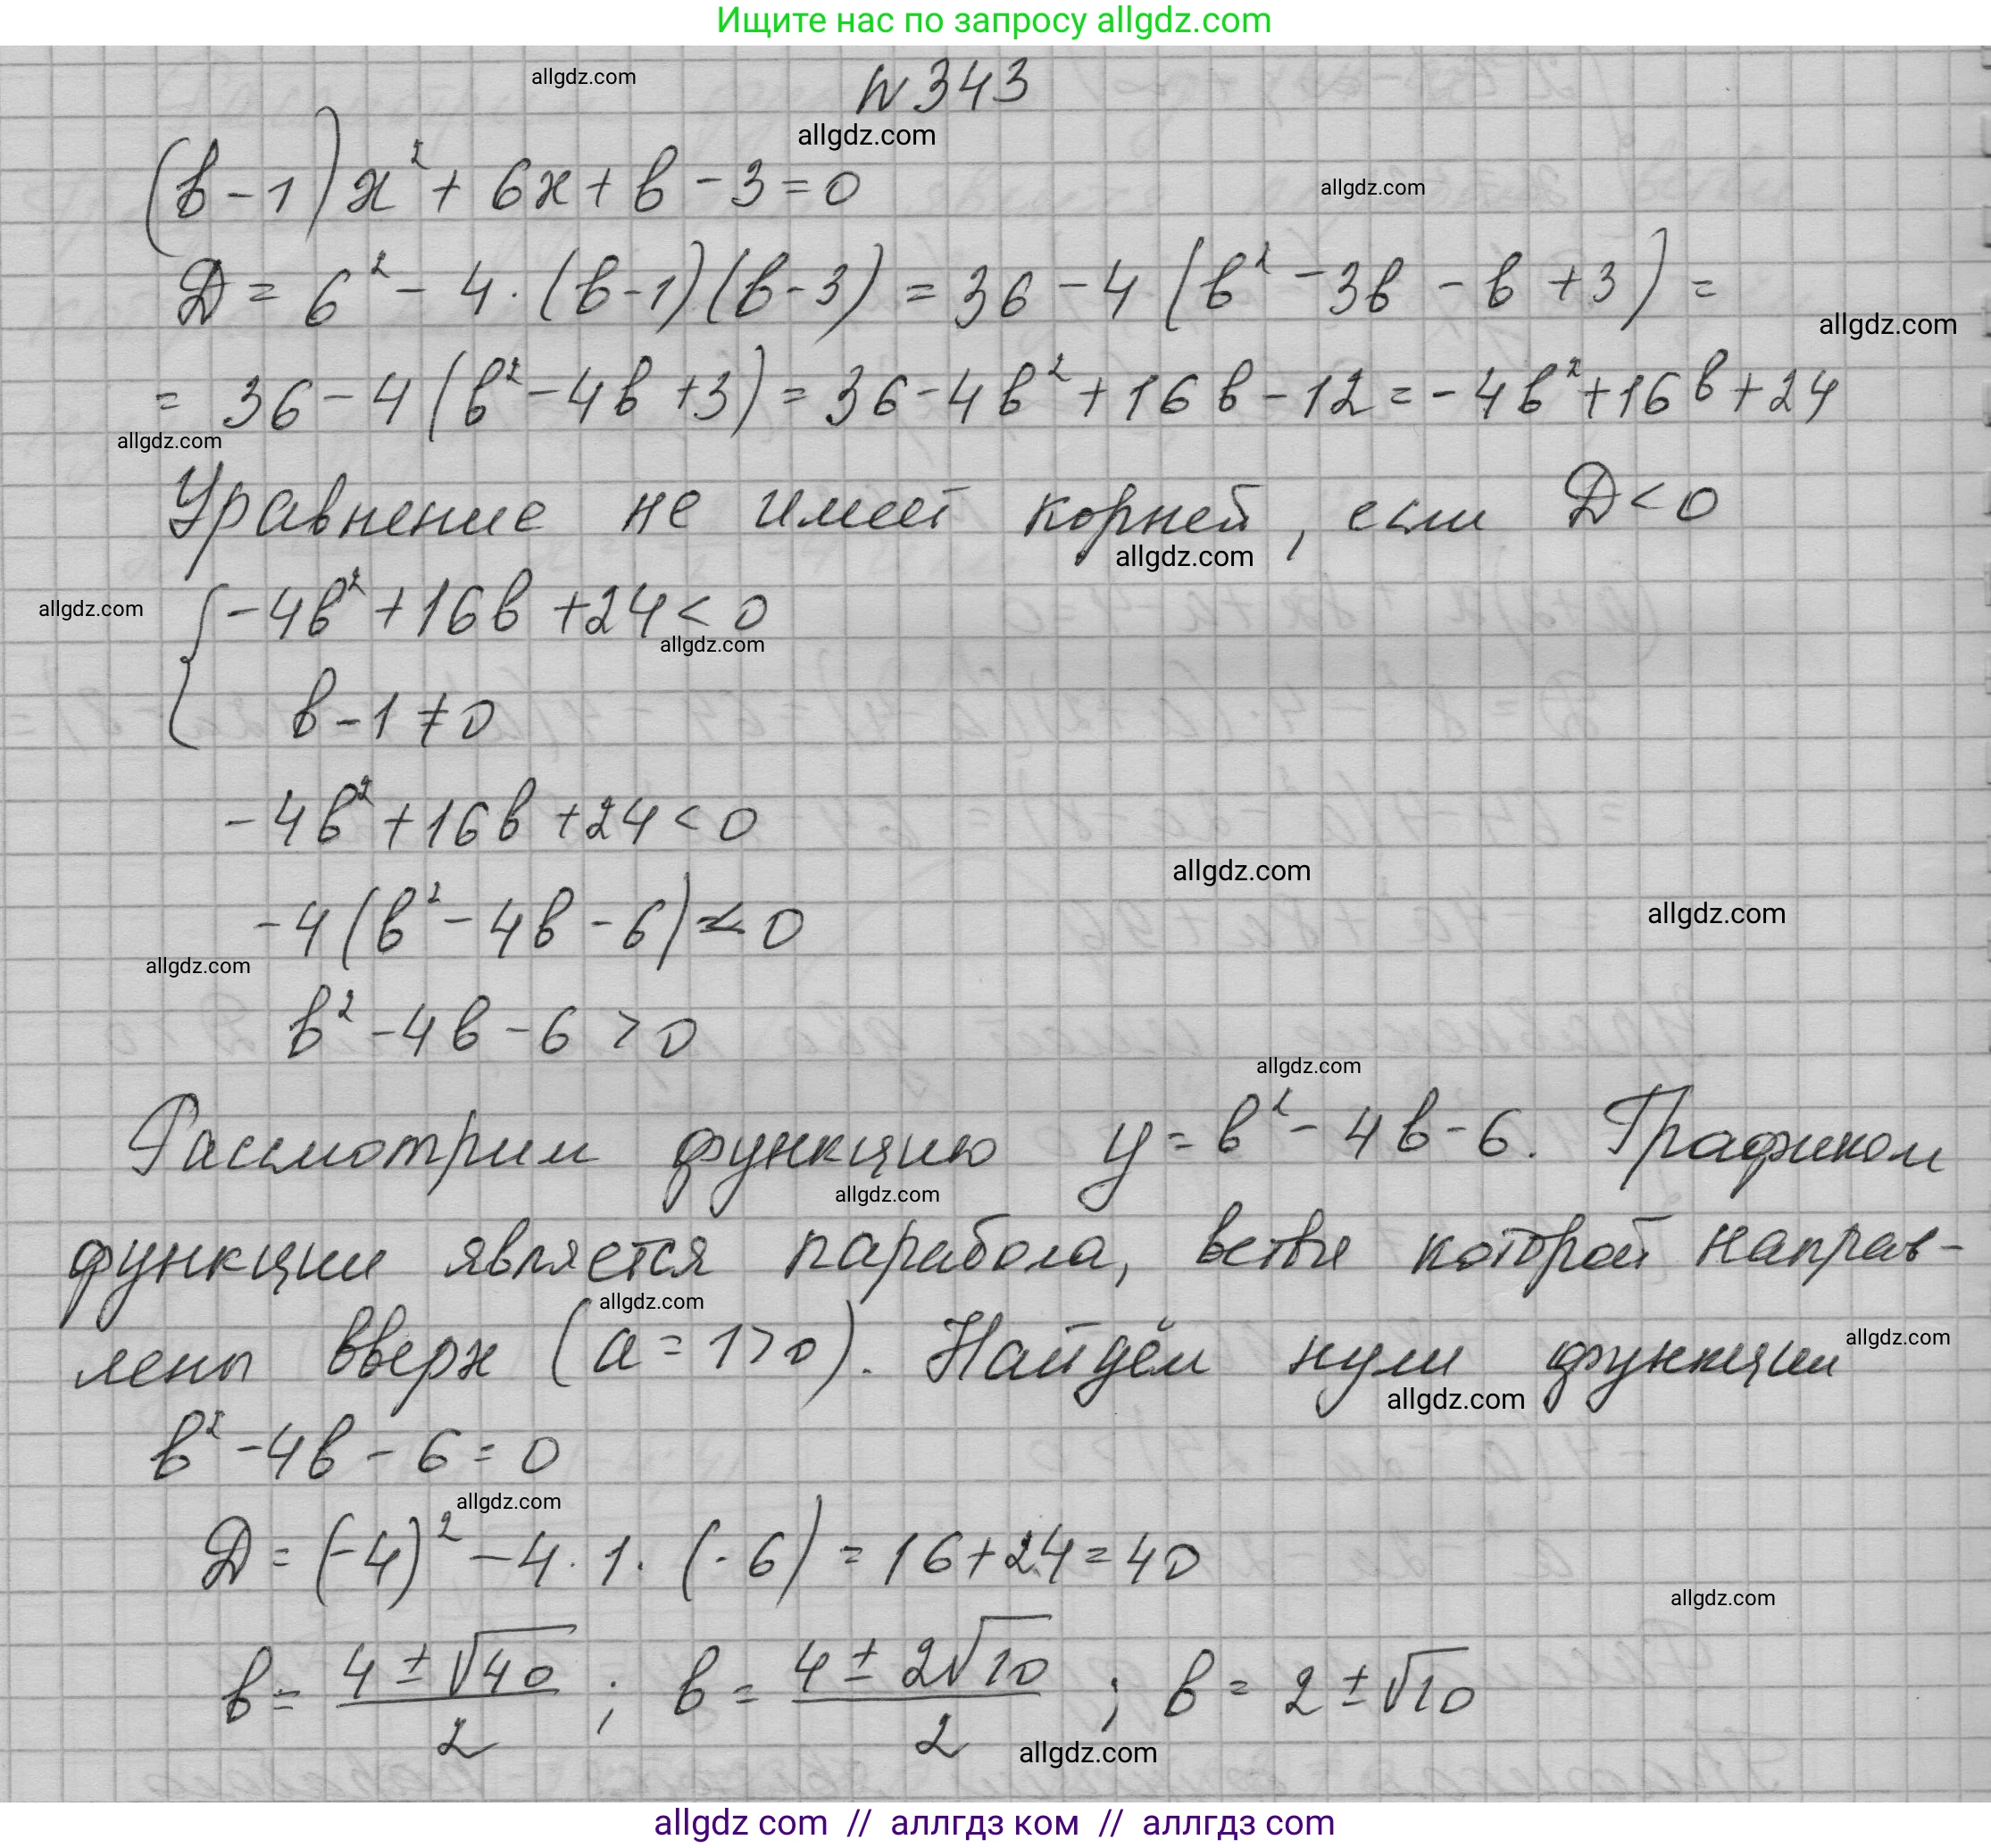 Ищите нас по запросу allgdz.com
allgdz.com
N 343
allgdz.com
(в-1)x²+6x+в-3=0
allgdz.com
D=6²-4·(в-1)(в-3)=36-4(в²-3в-в+3)=
allgdz.com
=36-4(в²-4в+3)=36-4в²+16в-12=-4в²+16в+24
allgdz.com
Уравнение не имеет корней, если D<0
allgdz.com
allgdz.com
{-4в²+16в+24<0
allgdz.com
в-1≠0
-4в²+16в+24<0
allgdz.com
-4(в²-4в-6)<0
allgdz.com
allgdz.com
в²-4в-6>0
allgdz.com
Рассмотрим функцию y=в²-4в-6. Графиком
allgdz.com
функции является парабола, ветви которой направ-
allgdz.com
лены вверх (a=1>0). Найдём нули функции
allgdz.com
allgdz.com
в²-4в-6=0
allgdz.com
D=(-4)²-4·1·(-6)=16+24=40
allgdz.com
в=(4±√40)/2; в=(4±2√10)/2; в=2±√10
allgdz.com
allgdz com // аллгдз ком // аллгдз com